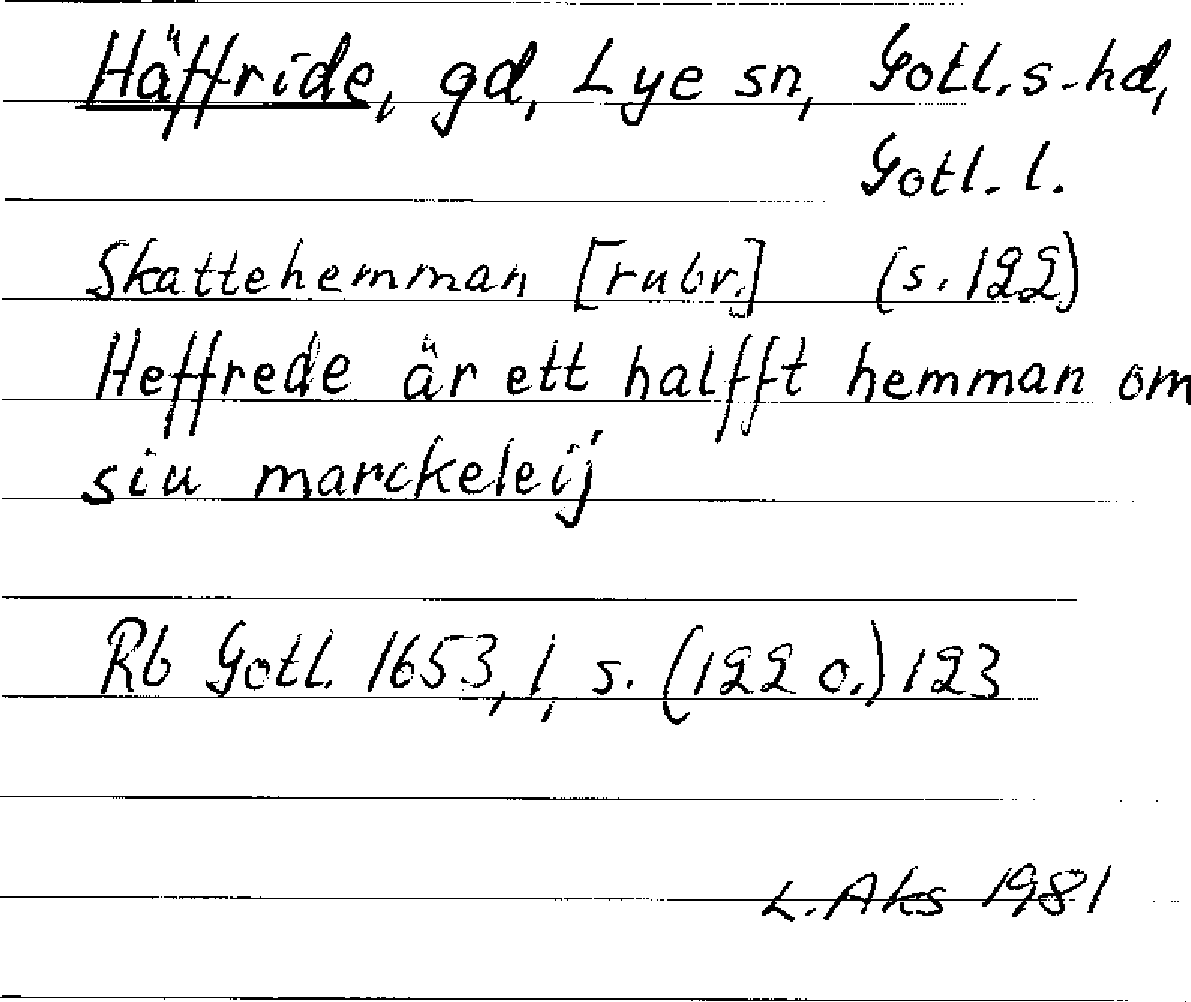 Häffride, gd, Lye sn, Gotl. s. hd,
Gotl. l.
Skattehemman [rubr.] (s. 122)
Heffrede är ett halfft hemman om
siu marckeleij
Rb Gotl. 1653, 1, s. (122 o.) 123
L. Aks 1981